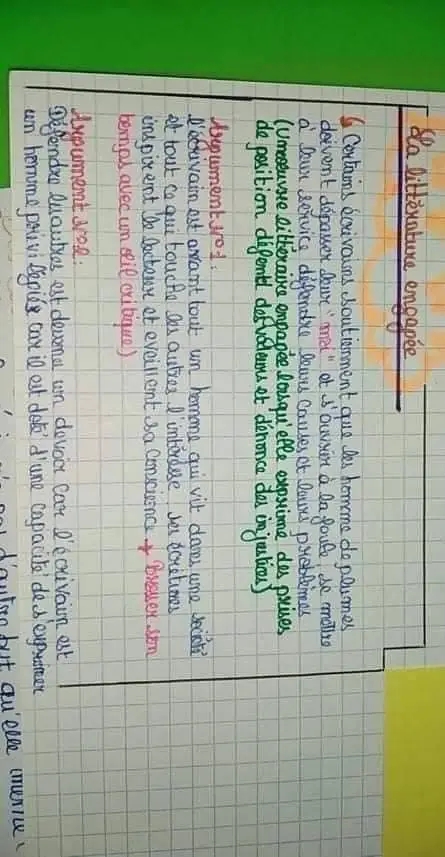 La littérature engagée
Certains écrivains soutiennent que les homme de plumes
doivent dépasser leur "moi" et s'ouvrir à la foule, se mettre
à leur service défendre leurs causes et leurs problèmes
(Une oeuvre littéraire engagée lorsqu'elle exprime des prises
de position défend des valeurs et dénonce des injustices)
Argument N°1:
L'écrivain est avant tout un homme qui vit dans une société
et tout ce qui touche les autres l'intéresse ses écritures
inspirent le lecteur et éveillent sa conscience → Brosser son
temps avec un œil critique)
Argument N°2:
Défendre les autres est devenu un devoir car l'écrivain est
un homme privilégié car il est doté d'une capacité de s'exprimer
pas d'autre but qu'elle même